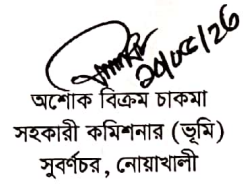 ২০/০৫/26
অশোক বিক্রম চাকমা
সহকারী কমিশনার (ভূমি)
সুবর্ণচর, নোয়াখালী